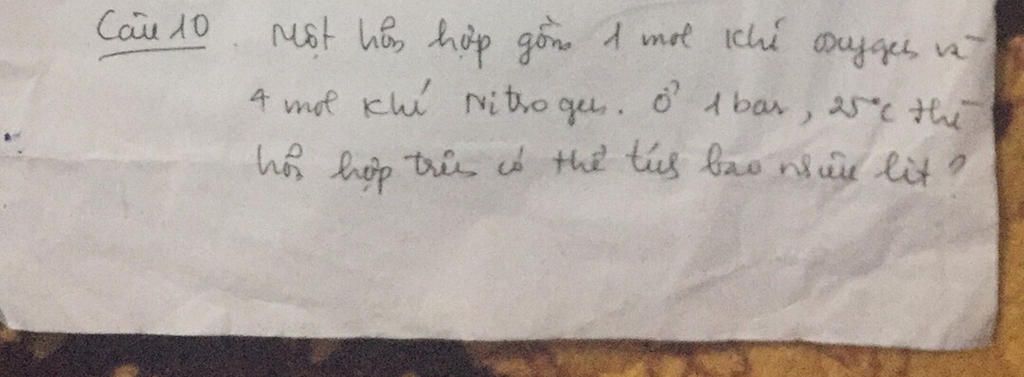 Câu 10. Một hỗn hợp gồm 1 mol khí oxygen và
4 mol khí Nitrogen. Ở 1 bar, 25°C thì
hỗn hợp trên có thể tích bao nhiêu lít?